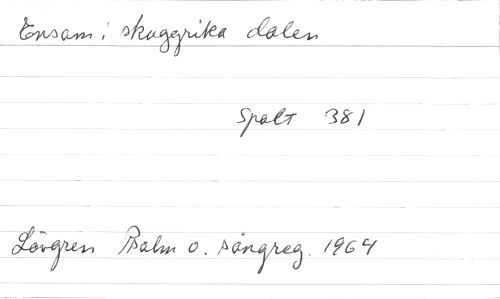 Ensam i skuggrika dalen
Spalt 381
Lövgren Psalm o. sångreg. 1964